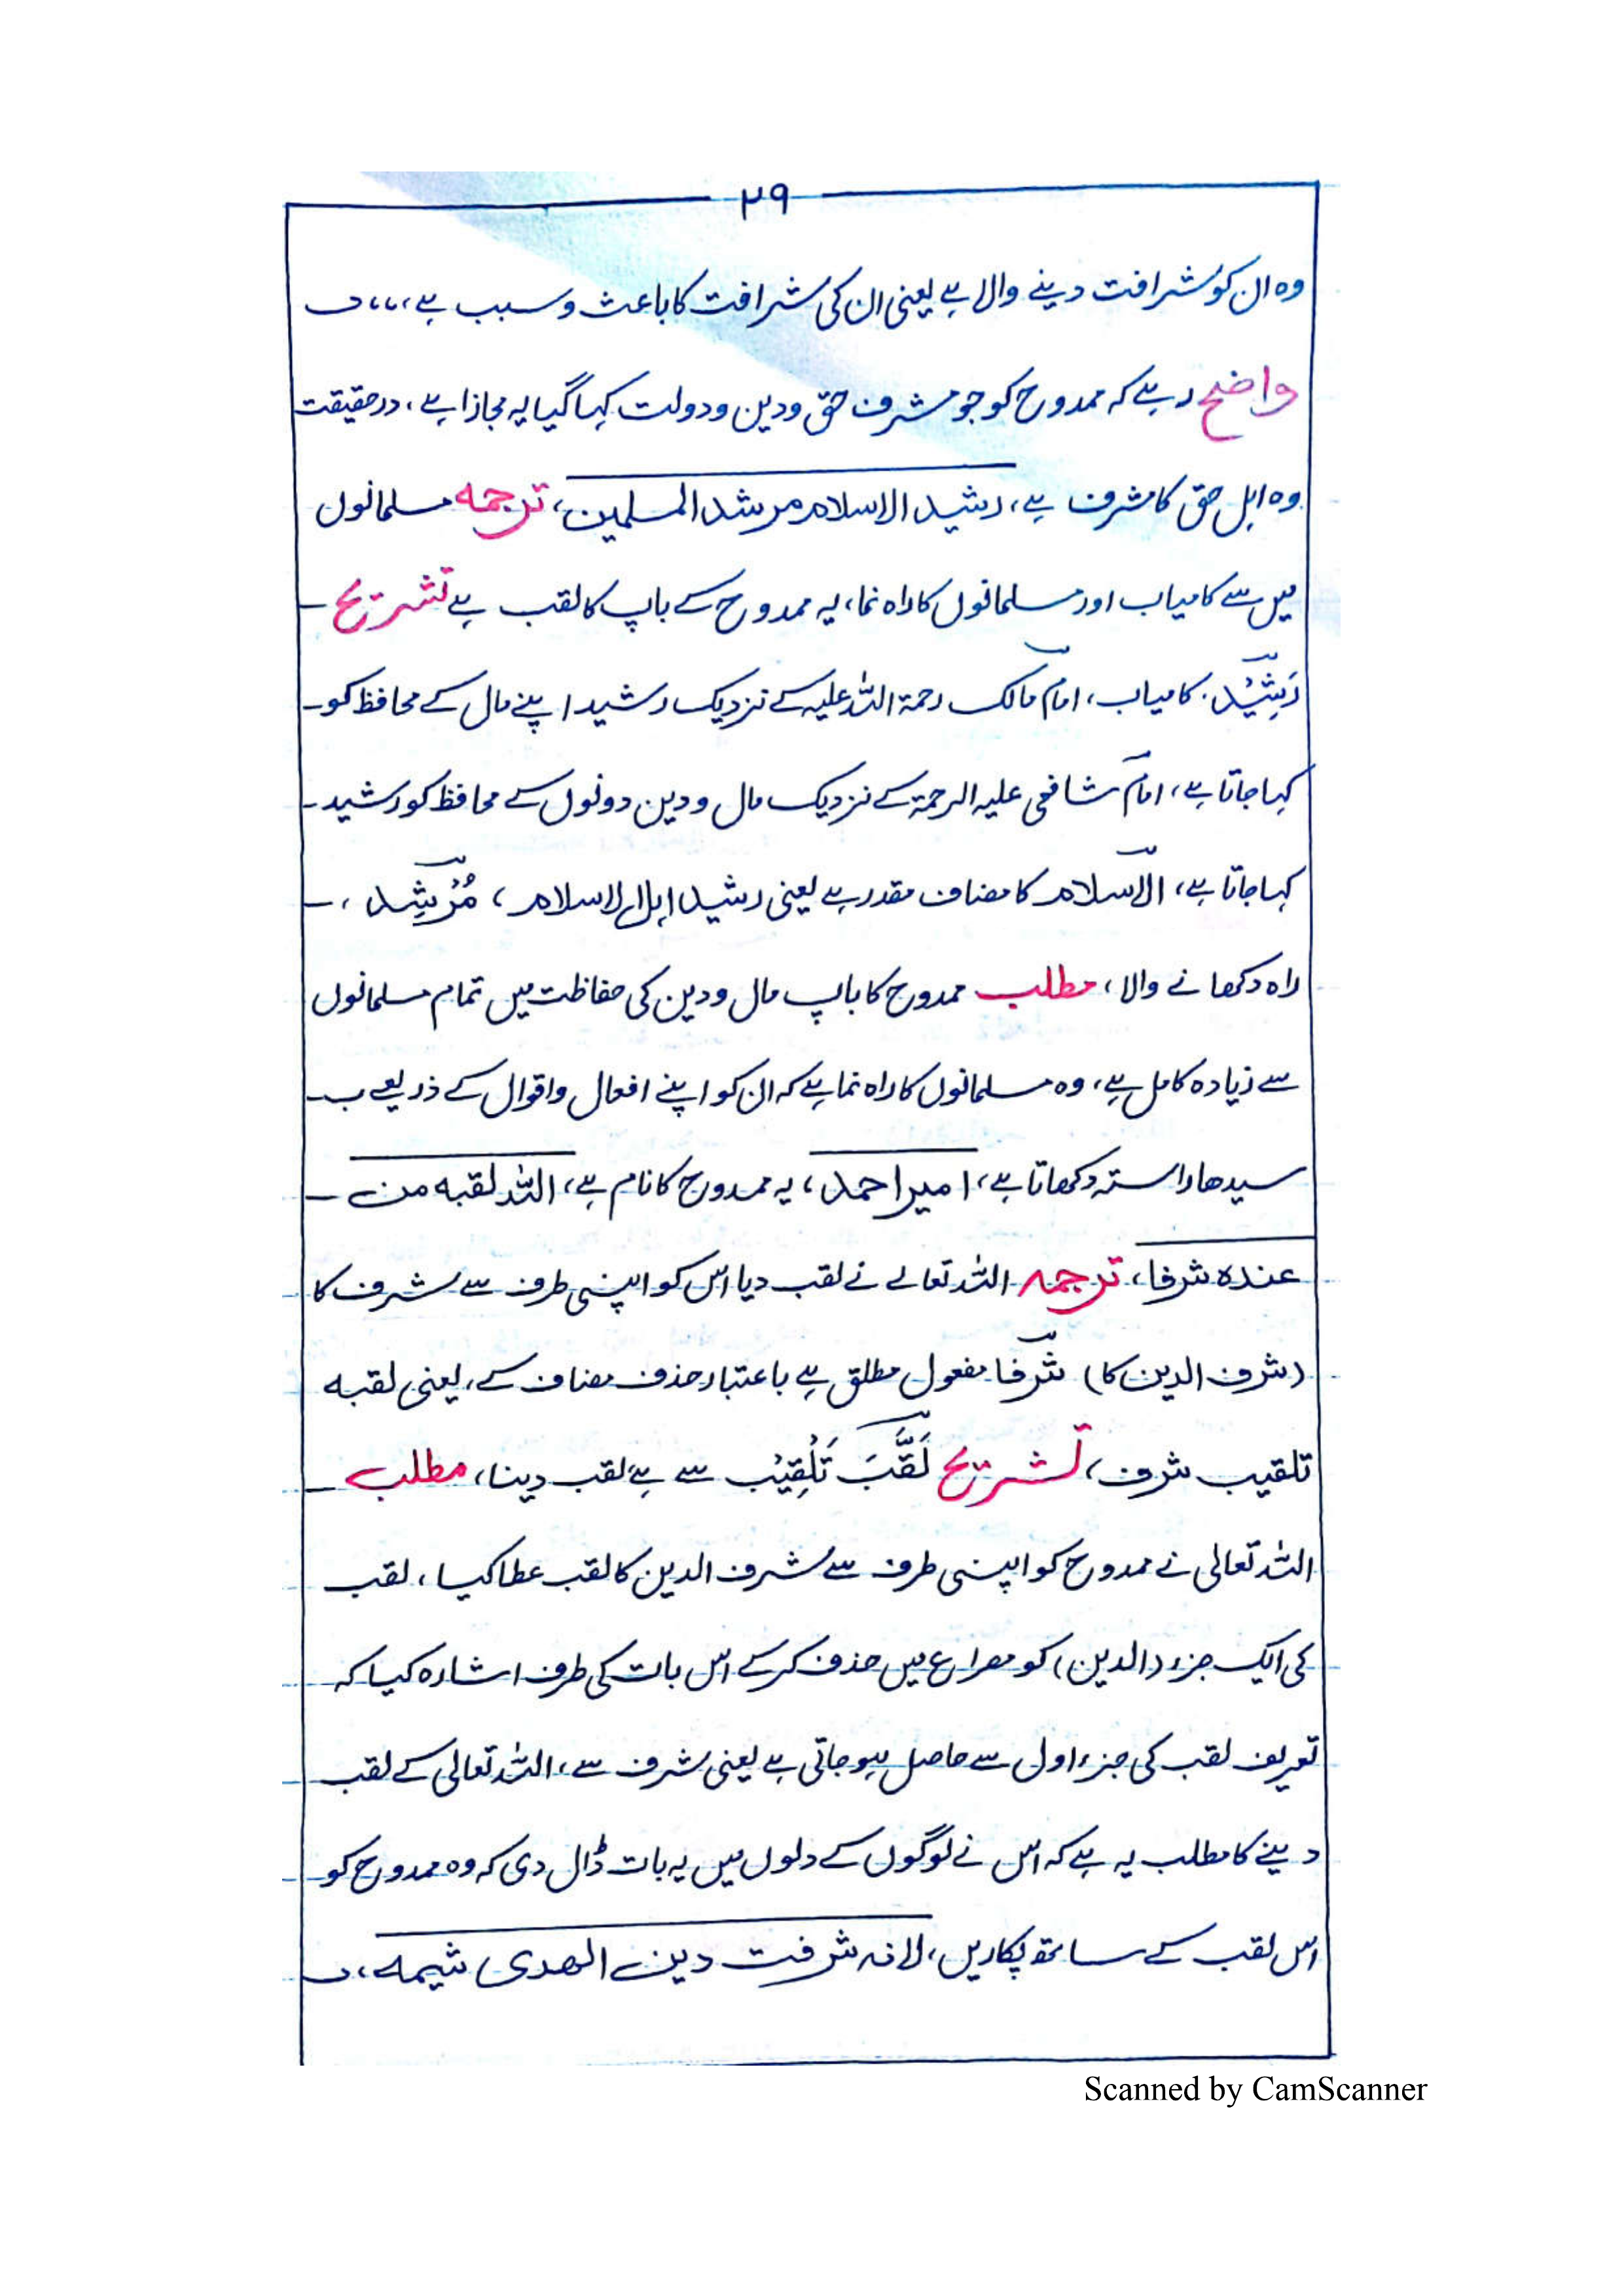 ۲۹
وہ ان کو شرافت دینے والا ہے یعنی ان کی شرافت کا باعث و سبب ہے،،،
واضح رہے کہ ممدوح کو جو مشرف حق و دین و دولت کہا گیا یہ مجازا ہے، درحقیقت
وہ اہل حق کا مشرف ہے، رشید الاسلام مرشد المسلمین، ترجمہ مسلمانوں
میں سے کامیاب اور مسلمانوں کا راہ نما، یہ ممدوح کے باپ کا لقب ہے تشریح
رَشِیْد، کامیاب، امام مالک رحمۃ اللہ علیہ کے نزدیک رشید اپنے مال کے محافظ کو
کہا جاتا ہے، امام شافعی علیہ الرحمۃ کے نزدیک مال و دین دونوں کے محافظ کو رشید
کہا جاتا ہے، الاسلام کا مضاف مقدر ہے یعنی رشید اہل الاسلام، مُرْشِد،
راہ دکھانے والا، مطلب ممدوح کا باپ مال و دین کی حفاظت میں تمام مسلمانوں
سے زیادہ کامل ہے، وہ مسلمانوں کا راہ نما ہے کہ ان کو اپنے افعال و اقوال کے ذریعے
سیدھا راستہ دکھاتا ہے، امیر احمد، یہ ممدوح کا نام ہے، اللہ لقبه من
عنده شرفا، ترجمہ اللہ تعالے نے لقب دیا اس کو اپنی طرف سے شرف کا
(شرف الدین کا) شرفا مفعول مطلق ہے باعتبار حذف مضاف کے، یعنی لقبه
تلقیب شرف، تشریح لَقَّبَ تَلْقِیْب سے ہے لقب دینا، مطلب
اللہ تعالی نے ممدوح کو اپنی طرف سے شرف الدین کا لقب عطا کیا، لقب
کی ایک جزء (الدین) کو مصراع میں حذف کر کے اس بات کی طرف اشارہ کیا کہ
تعریف لقب کی جزء اول سے حاصل ہو جاتی ہے یعنی شرف سے، اللہ تعالی کے لقب
دینے کا مطلب یہ ہے کہ اس نے لوگوں کے دلوں میں یہ بات ڈال دی کہ وہ ممدوح کو
اس لقب کے ساتھ پکاریں، لانه شرفت دین الهدی شیمه،
Scanned by CamScanner